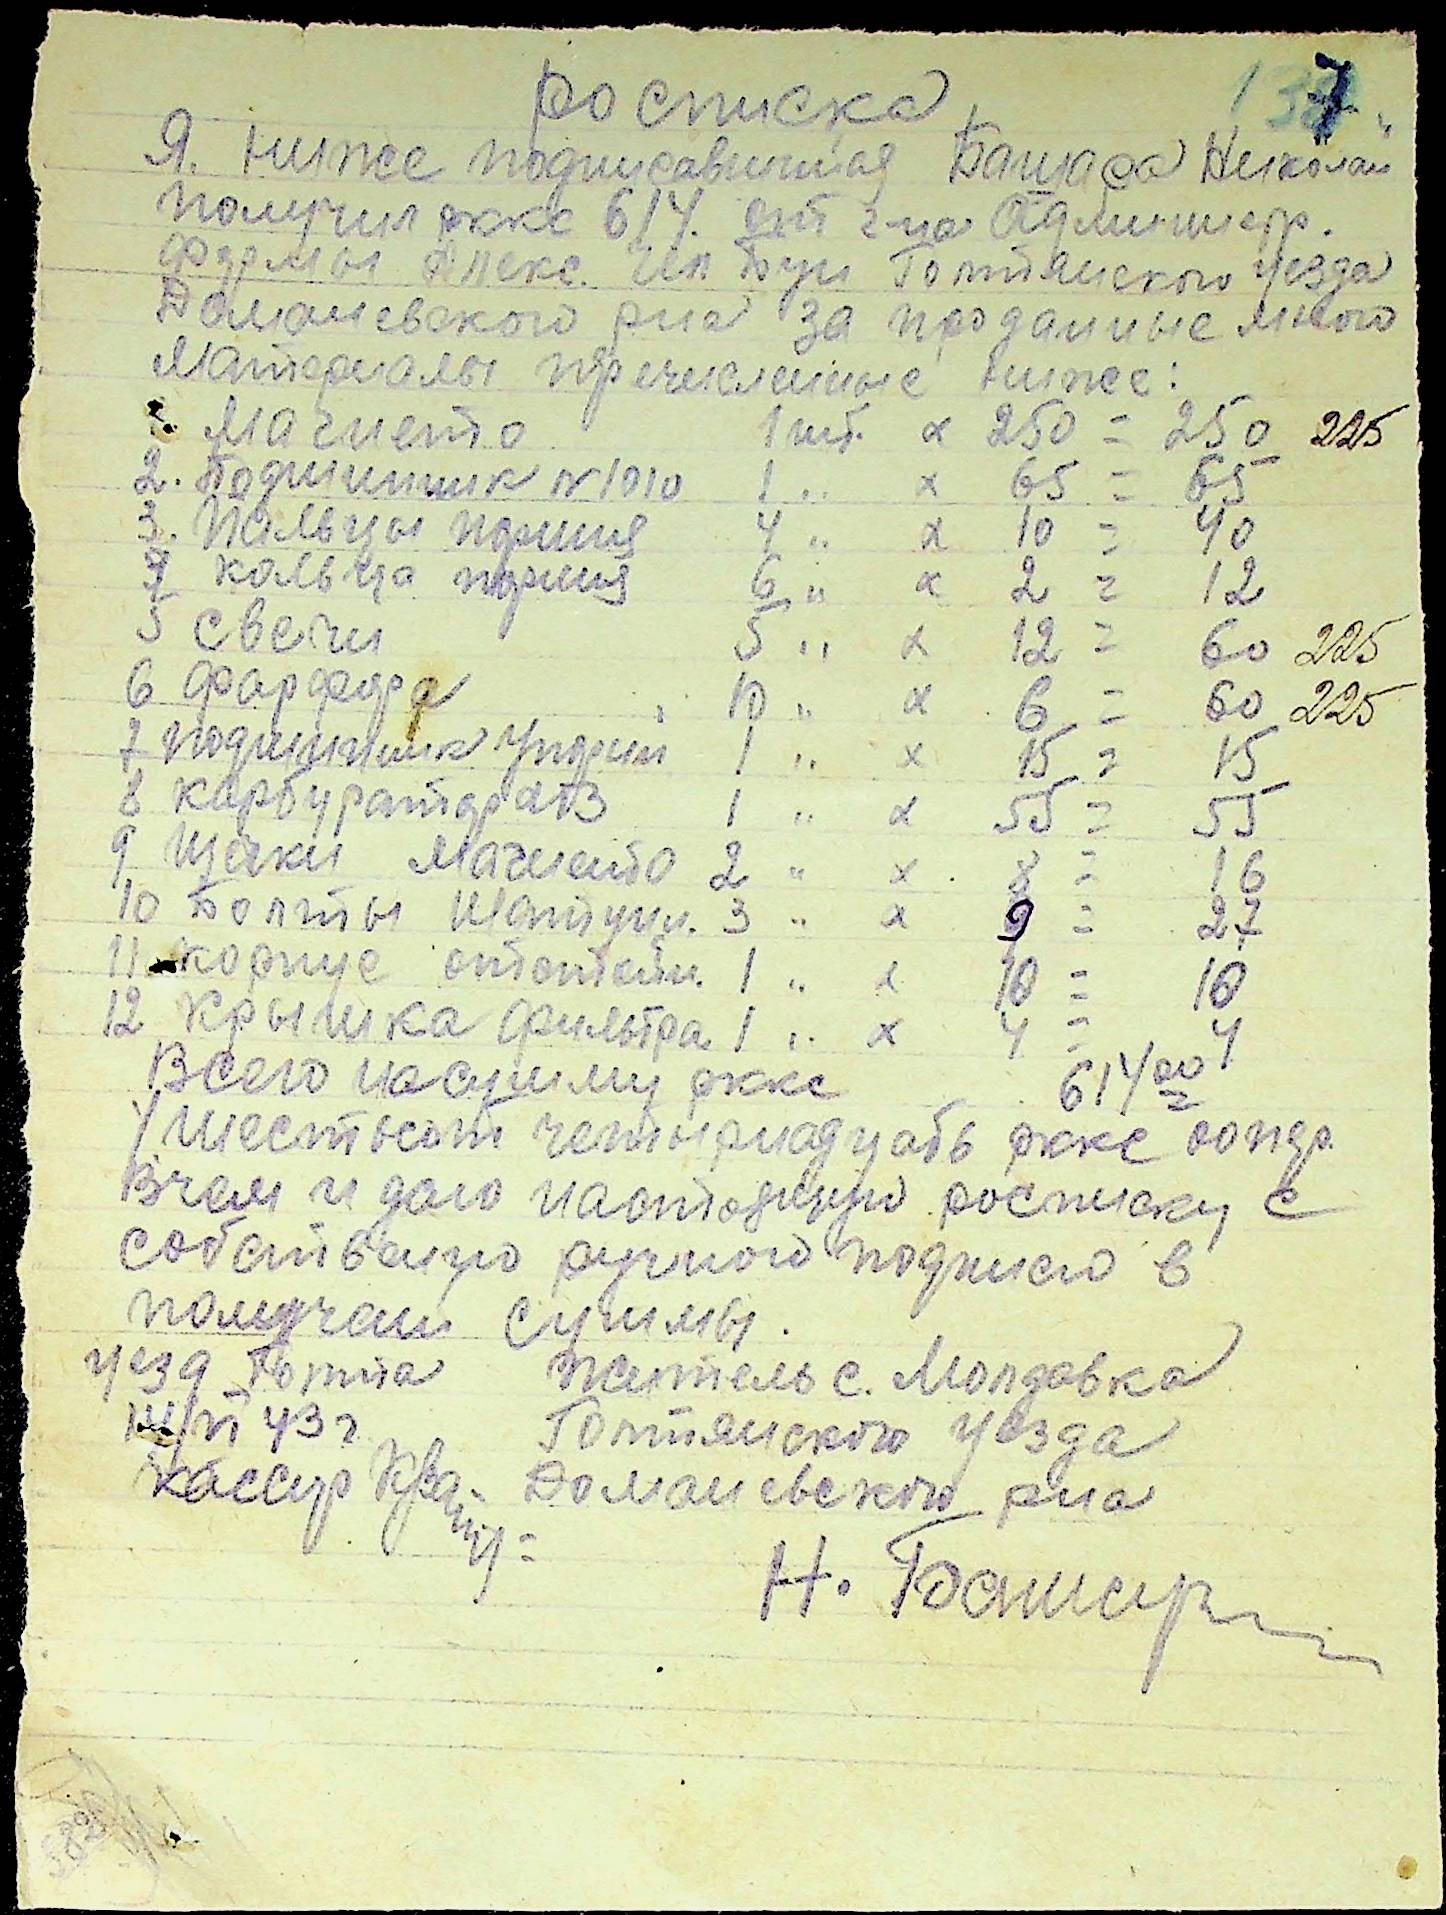 росписка
7
Я. ниже подписавшийся Башара Николай
получил ркке 614. от г-на Администр.
фермы Алекс. Чел Буи Голтянского уезда
Доманевского р-на за проданные мною
материалы пречисленные ниже:
1 Магнето 1 шт. х 250 = 250 225
2. Подшипник N 1010 1 " х 65 = 65
3. Пальцы поршня 4 " х 10 = 40
4 кольца поршня 6 " х 2 = 12
5 свечи 5 " х 12 = 60 225
6 фарфора 10 " х 6 = 60 225
7 подшипник упорн 1 " х 15 = 15
8 карбуратор 1 " х 55 = 55
9 Щечки магнето 2 " х 8 = 16
10 Болты Шатунн. 3 " х 9 = 27
11 корпус 1 " х 10 = 10
12 Крышка фильтра 1 " х 4 = 4
Всего на сумму ркке 614 00
/ Шестьсот четырнадцать ркке 00 пф.
В чем и даю настоящую росписку с
собственно ручною подписю в
получен суммы.
уезд Голта житель с. Молдавка
43 г Голтянского уезда
Кассир Доманевского р-на
Н. Башар